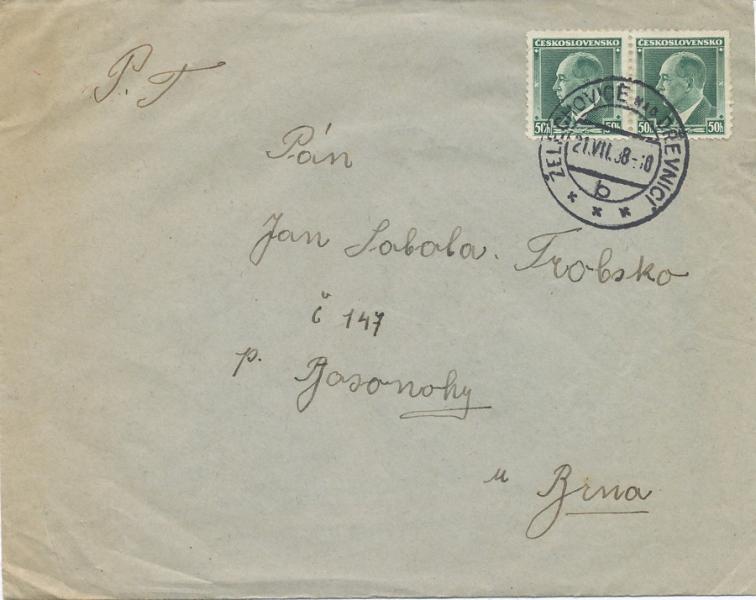 ČESKOSLOVENSKO ČESKOSLOVENSKO
50h 50h 50h 50h
ŽELECHOVICE NAD DŘEVNICÍ
21.VII.38-10
b
P. T
Pán
Jan Sabala. Trobsko
č 147
p. Bosonohy
u Brna